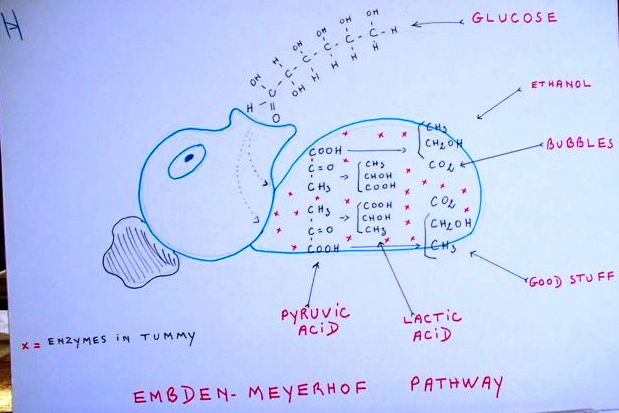 H
GLUCOSE
OH H OH OH OH OH
C-C-C-C-C-C-H
OH H H H H
H-
O
ETHANOL
BUBBLES
GOOD STUFF
COOH
C=O
CH3
CH3
C=O
COOH
CH3
CHOH
COOH
COOH
CHOH
CH3
CH3
CH2OH
CO2
CO2
CH2OH
CH3
PYRUVIC
ACID
LACTIC
ACID
x = ENZYMES IN TUMMY
EMBDEN-MEYERHOF PATHWAY